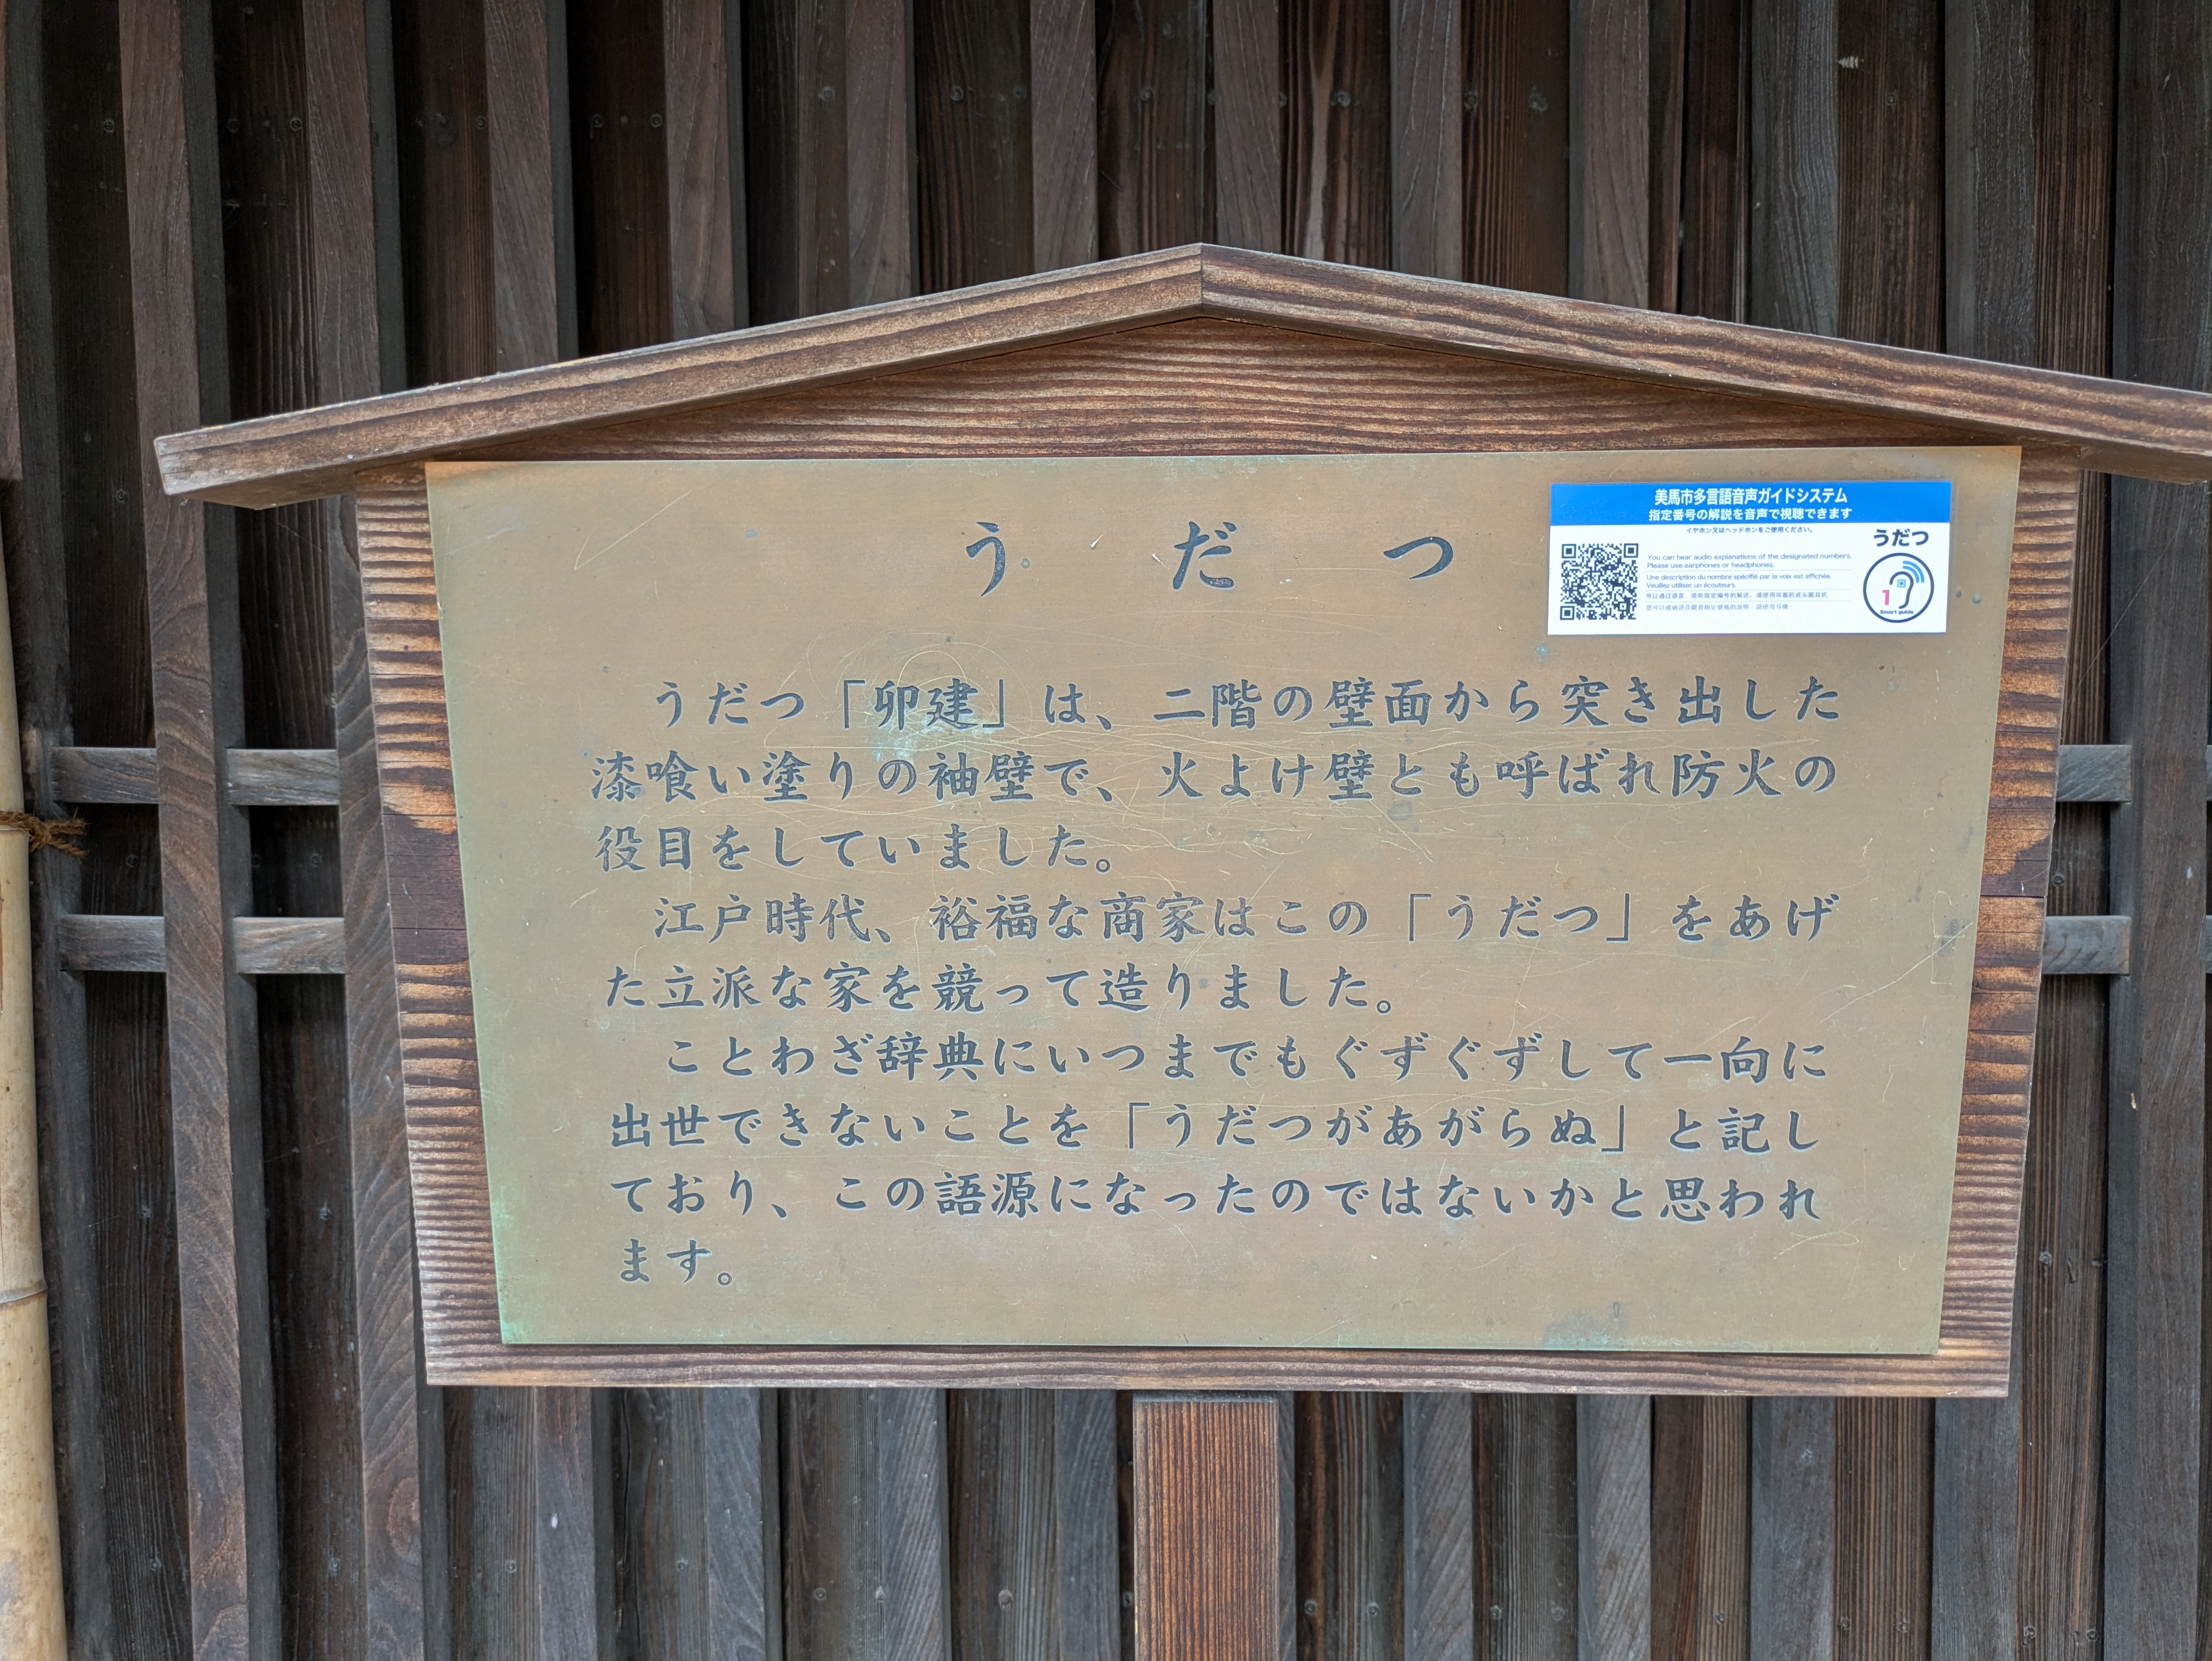 うだつ
美馬市多言語音声ガイドシステム
指定番号の解説を音声で視聴できます
イヤホン又はヘッドホンをご使用ください。
You can hear audio explanations of the designated numbers.
Please use earphones or headphones.
Une description du nombre spécifié par la voix est affichée.
Veuillez utiliser un écouteurs.
うだつ
1
Smart guide
うだつ「卯建」は、二階の壁面から突き出した
漆喰い塗りの袖壁で、火よけ壁とも呼ばれ防火の
役目をしていました。
江戸時代、裕福な商家はこの「うだつ」をあげ
た立派な家を競って造りました。
ことわざ辞典にいつまでもぐずぐずして一向に
出世できないことを「うだつがあがらぬ」と記し
ており、この語源になったのではないかと思われ
ます。